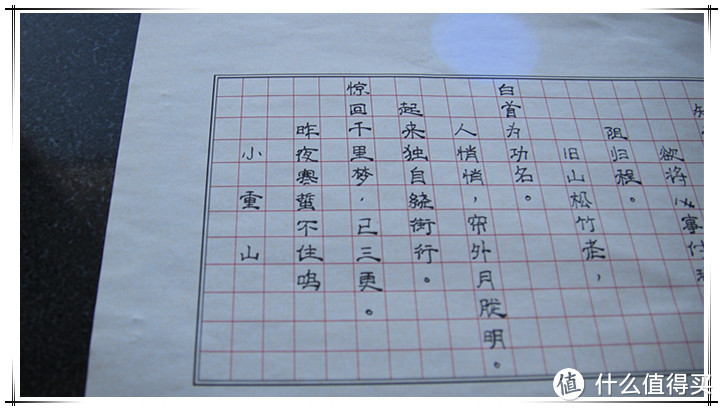 小重山
昨夜寒蛩不住鸣
惊回千里梦，已三更。
起来独自绕街行。
人悄悄，帘外月胧明。
白首为功名。
旧山松竹老，
阻归程。
欲将心事付
值 什么值得买